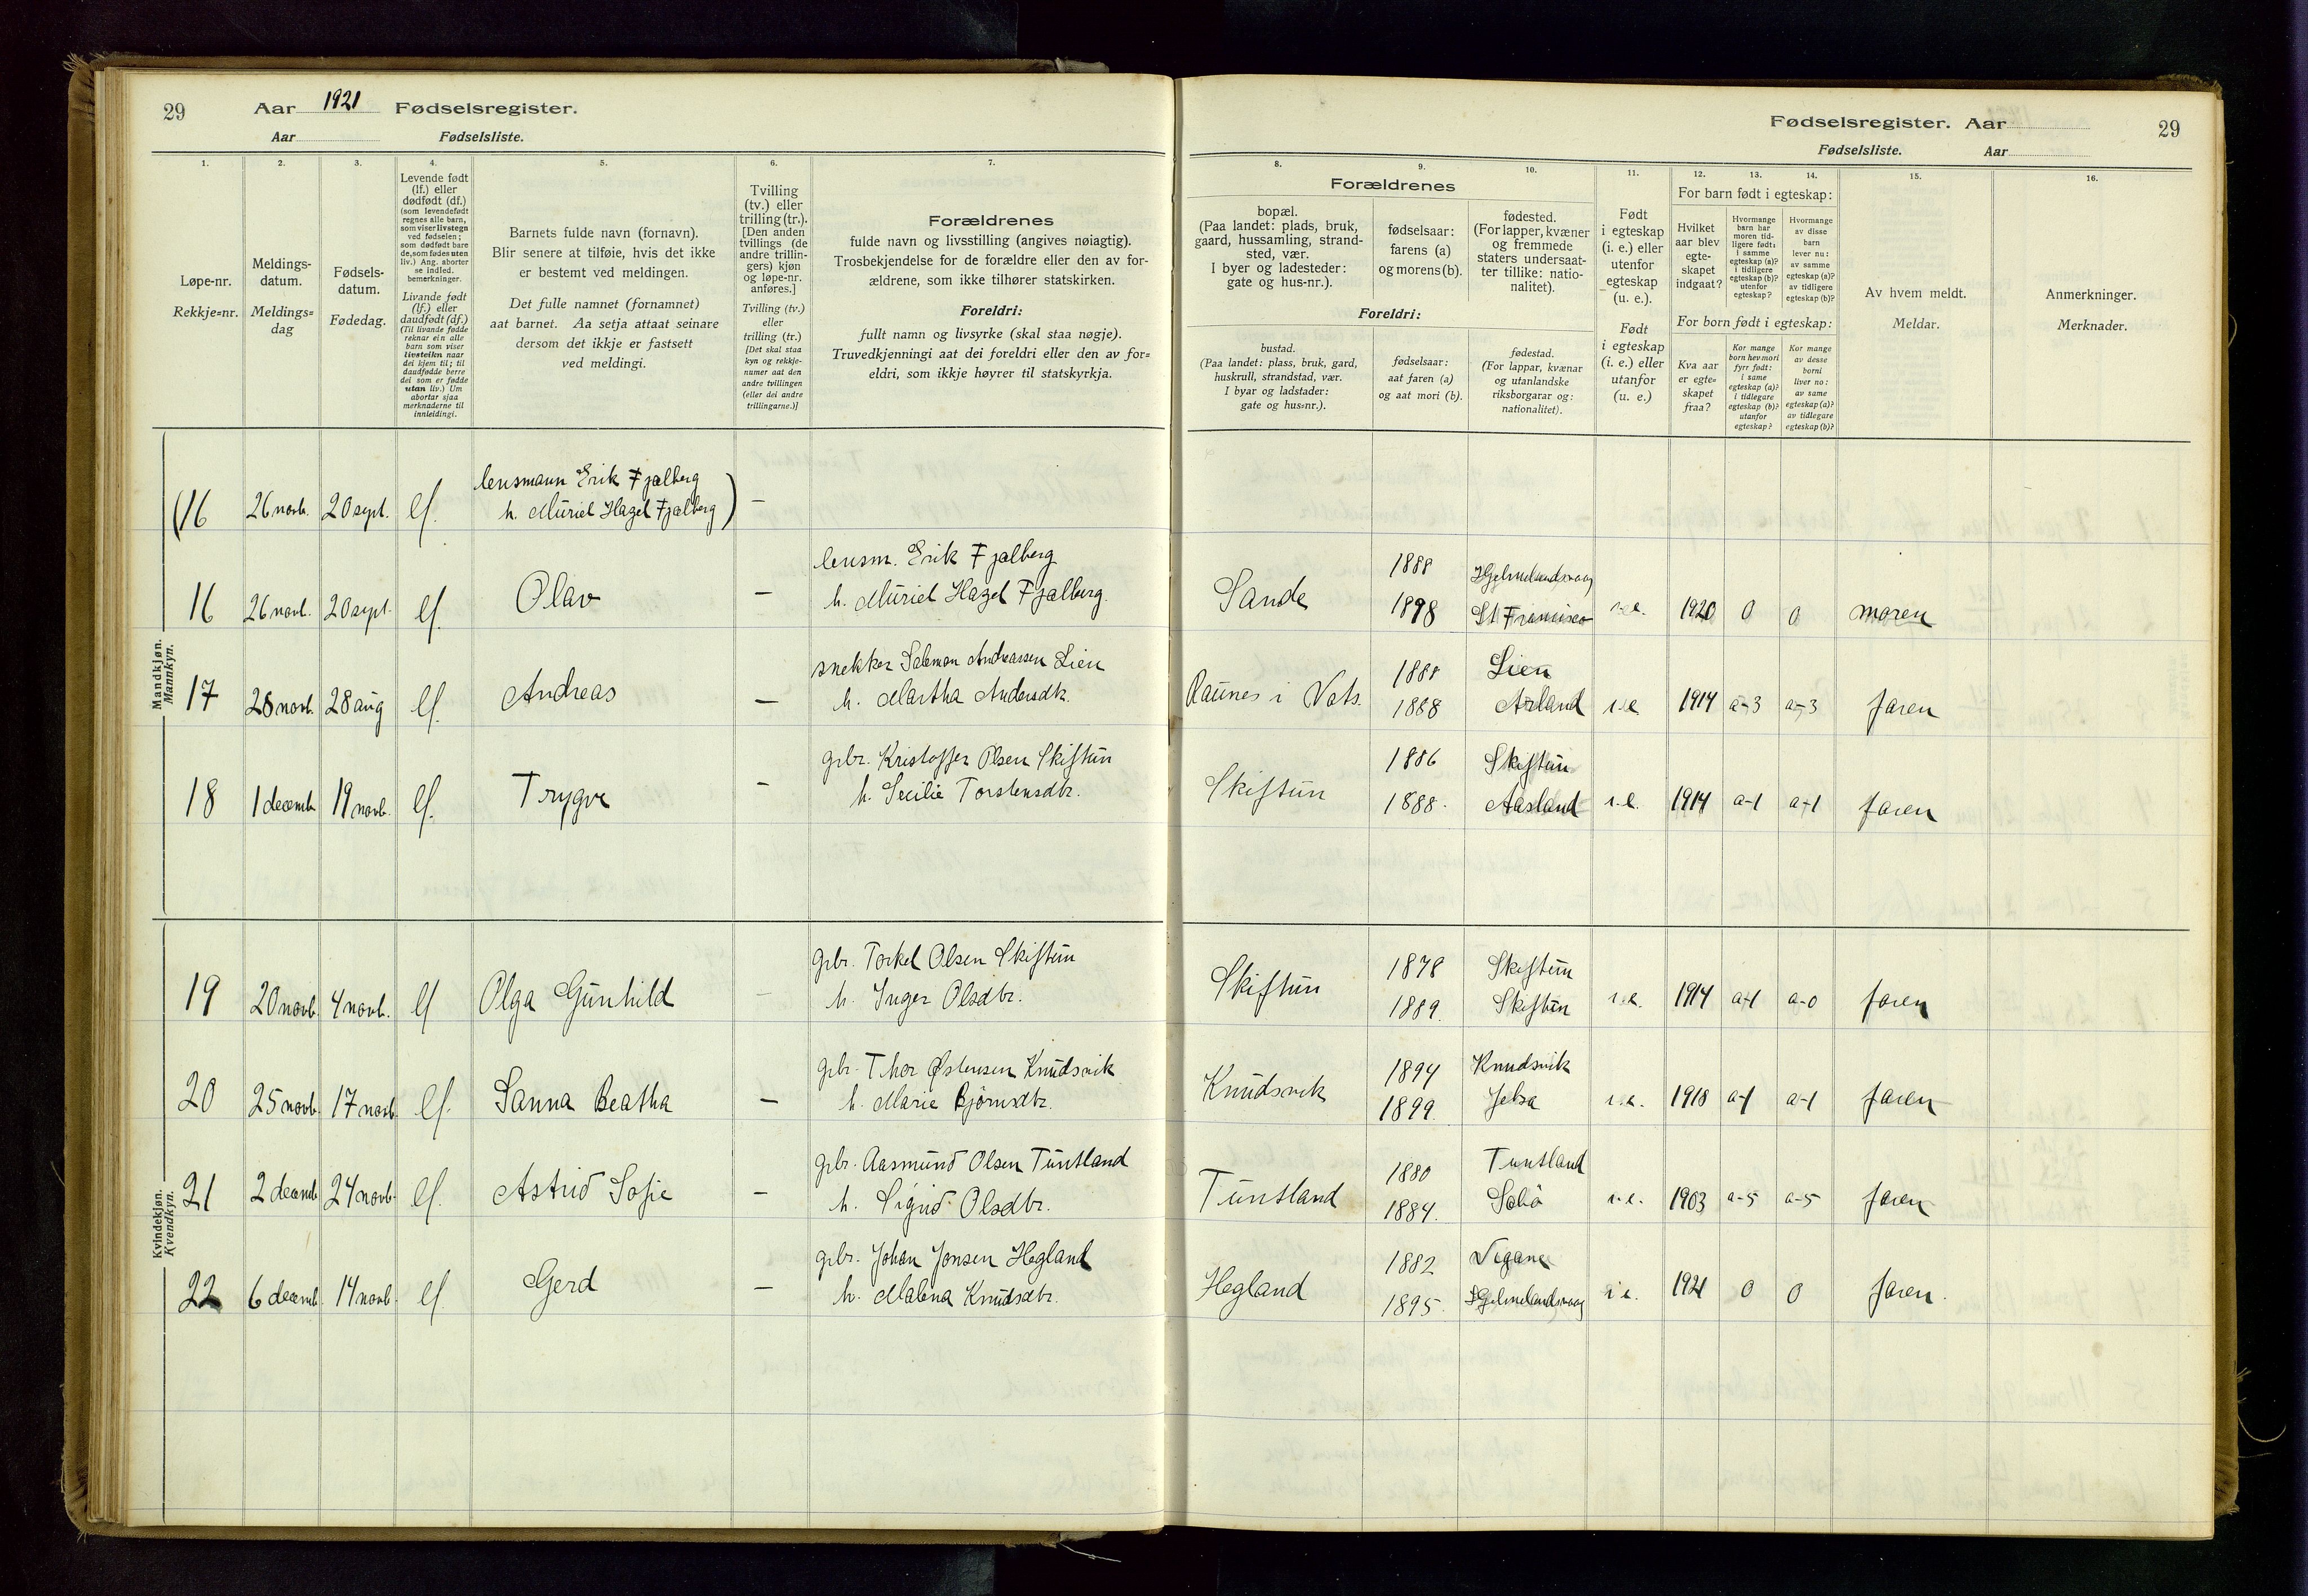 29 Aar 1921 Fødselsregister.
Aar Fødselsliste.
Fødselsregister. Aar 29
Fødselsliste. Aar
1. 2. 3. 4. 5. 6. 7. 8. 9. 10. 11. 12. 13. 14. 15. 16.
Løpe-nr.
Rekkje=nr.
Meldings-
datum.
Meldings=
dag
Fødsels-
datum.
Fødedag.
Levende født
(lf.) eller
dødfødt (df.)
(som levendefødt
regnes alle barn,
som viser livstegn
ved fødselen;
som dødfødt bare
de, som fødes uten
liv.) Ang. aborter
se indled.
bemerkninger.
Livande født
(lf.) eller
daudfødt (df.)
(Til livande fødde
reknar ein alle
barn som viser
livsteikn naar
dei kjem til; til
daudfødde berre
dei som er fødde
utan liv.) Um
abortar sjaa
merknaderne til
innleidingi.
Barnets fulde navn (fornavn).
Blir senere at tilføie, hvis det ikke
er bestemt ved meldingen.
Det fulle namnet (fornamnet)
aat barnet. Aa setja attaat seinare
dersom det ikkje er fastsett
ved meldingi.
Tvilling
(tv.) eller
trilling (tr.).
[Den anden
tvillings (de
andre trillin-
gers) kjøn
og løpe-nr.
anføres.]
Tvilling (tv.)
eller
trilling (tr.)
[Det skal staa
kyn og rekkje-
numer aat den
andre tvillingen
(eller dei andre
trillingarne.)]
Forældrenes
fulde navn og livsstilling (angives nøiagtig).
Trosbekjendelse for de forældre eller den av for-
ældrene, som ikke tilhører statskirken.
Foreldri:
fullt namn og livsyrke (skal staa nøgje).
Truvedkjenningi aat dei foreldri eller den av for=
eldri, som ikkje høyrer til statskyrkja.
Forældrenes
bopæl.
(Paa landet: plads, bruk,
gaard, hussamling, strand-
sted, vær.
I byer og ladesteder:
gate og hus-nr.).
fødselsaar:
farens (a)
og morens (b).
fødested.
(For lapper, kvæner
og fremmede
staters undersaat-
ter tillike: natio-
nalitet).
Foreldri:
bustad.
(Paa landet: plass, bruk, gard,
huskrull, strandstad, vær.
I byar og ladstader:
gate og hus=nr.).
fødselsaar:
aat faren (a)
og aat mori (b).
fødestad.
(For lappar, kvænar
og utanlandske
riksborgarar og:
nationalitet).
Født
i egteskap
(i. e.) eller
utenfor
egteskap
(u. e.).
Født
i egteskap
(i. e.) eller
utanfor
(u. e.)
For barn født i egteskap:
Hvilket
aar blev
egte-
skapet
indgaat?
Hvormange
barn har
moren tid-
ligere født:
i samme
egteskap (a)?
i tidligere
egteskap (b)?
utenfor
egteskap?
Hvormange
av disse
barn
lever nu:
av samme
egteskap (a)?
av tidligere
egteskap (b)?
For born født i egteskap:
Kva aar
er egte=
skapet
fraa?
Kor mange
born hev mori
fyrr født:
i same
egteskap (a)?
i tidlegare
egteskap (b)?
utanfor
egteskap?
Kor mange
av desse
borni
liver no:
av same
egteskap (a)?
av tidlegare
egteskap (b)?
Av hvem meldt.
Meldar.
Anmerkninger.
Merknader.
Mandkjøn.
Mannkyn.
lensmann Erik Fjælberg
(16 26 novb. 20 sept. lf. h. Müriel Hazel Fjælberg) –
lensm. Erik Fjælberg 1888 Hjelmelandsvaag
16 26 novb. 20 sept. lf. Olav – h. Müriel Hazel Fjælberg. Sande 1898 St Francisco i.e. 1920 0 0 moren
snekker Salemon Andreassen Lien 1888 Lien
17 28 novb. 28 aug lf. Andreas – h. Martha Andersdtr. Raunes i Vats. 1888 Arland i.e. 1914 a-3 a-3 faren
gbr. Kristoffer Olsen Skiftün 1886 Skiftün
18 1 decemb. 19 novb. lf. Trygve – h. Secilie Torstensdtr. Skiftün 1888. Aasland i.e. 1914 a-1 a-1 faren
Kvindekjøn.
Kvendkyn.
gbr. Torkel Olsen Skiftün 1878 Skiftün
19 20 novb. 4 novb. lf Olga Günhild – h. Inger Olsdtr. Skiftün 1889. Skiftün i.e. 1914 a-1 a-0 faren
gbr. Thor Østensen Knüdsvik 1894 Knudsvik
20 25 novb. 17 novb. lf. Sanna Beatha – h. Marie Bjørnsdtr. Knüdsvik 1899. Jelsa i.e. 1918 a-1 a-1 faren
gbr. Aasmünd Olsen Tüntland 1880 Tuntland
21 2 decemb. 24 novb. lf. Astrid Sofie – h. Sigrid Olsdtr. Tüntland 1884. i.e. 1903 a-5 a-5 faren
gbr. Johan Jonsen Hegland 1882 Vegane
22 6 decemb. 14 novb. lf. Gerd – h. Malena Knüdsdtr. Hegland 1895. Hjelmelandsvaag i e. 1921 0 0 faren.